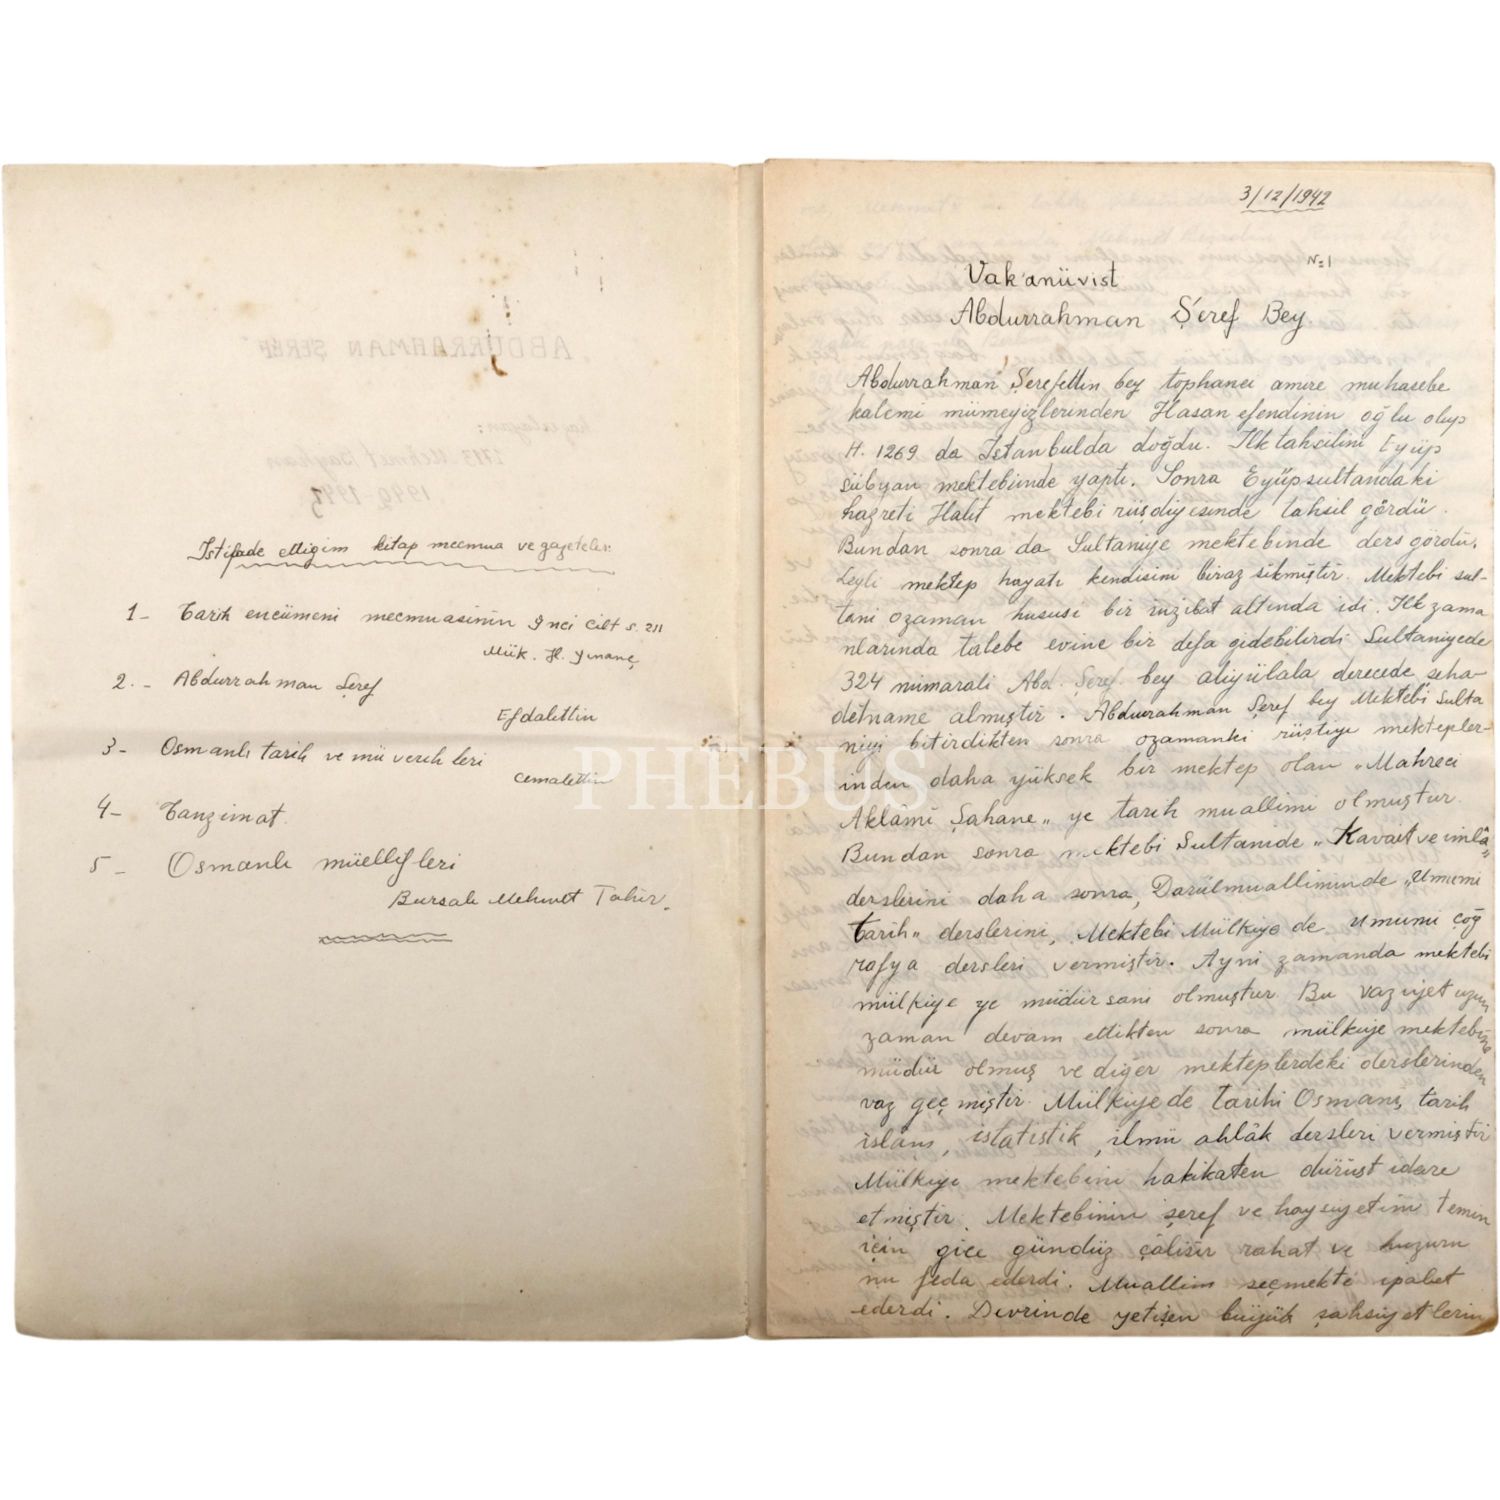 İstifade ettiğim kitap mecmua ve gazeteler:
1- Tarih encümeni mecmuasinin 9 nci Cilt s. 211
Mük. H. Yınanç
2.- Abdurrahman Şeref
Efdalettin
3- Osmanlı tarih ve müverihleri
Cemalettin
4- Tanzimat.
5- Osmanlı müellifleri
Bursalı Mehmet Tahir.
3/12/1942
N=1
Vak'anüvist
Abdurrahman Şeref Bey
Abdurrahman Şerefettin bey tophanei amire muhasebe
kalemi mümeyizlerinden Hasan efendinin oğlu olup
H. 1269 da İstanbulda doğdu. İlk tahsilini Eyüp
sübyan mektebinde yaptı. Sonra Eyüpsultandaki
hazreti Halit mektebi rüşdiyesinde tahsil gördü.
Bundan sonra da Sultaniye mektebinde ders gördü.
Leyli mektep hayatı kendisini biraz sıkmıştır. Mektebi sul-
tani ozaman hususi bir inzibat altında idi. İlk zama
nlarında talebe evine bir defa gidebilirdi Sultaniyede
324 numaralı Abd. Şeref bey aliyülala derecede şeha-
detname almıştır. Abdurrahman Şeref bey Mektebi Sulta
niyi bitirdikten sonra ozamanki rüştiye mektepler-
inden daha yüksek bir mektep olan "Mahreci
Aklâmi Şahane" ye tarih muallimi olmuştur.
Bundan sonra mektebi Sultanide "Kavait ve imlâ"
derslerini daha sonra, Darülmualliminde "Umumi
tarih" derslerini, Mektebi Mülkiye de umumi coğ
rafya dersleri vermiştir. Ayni zamanda mektebi
mülkiye ye müdür sani olmuştur. Bu vaziyet uzun
zaman devam ettikten sonra mülkiye mektebine
müdür olmuş ve diğer mekteplerdeki derslerinden
vaz geçmiştir. Mülkiyede Tarihi Osmani, tarih
islâm, istatistik, ilmü ahlâk dersleri vermiştir
Mülkiye mektebini hakikaten dürüst idare
etmiştir. Mektebinin şeref ve haysiyetini temin
için gice gündüz çalışır rahat ve huzuru
nu feda ederdi. Muallim seçmekte ipabet
ederdi. Devrinde yetişen büyük şahsiyetlerin
PHEBUS